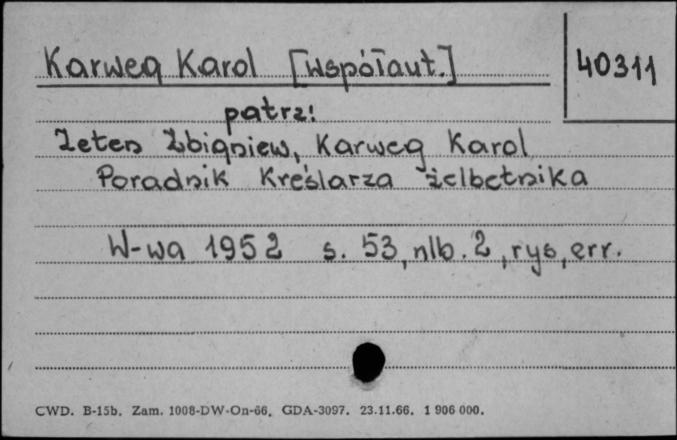 Karweg Karol [współaut.]
40311
patrz:
Zeten Zbigniew, Karweg Karol
Poradnik Kreślarza żelbetnika
W-wa 1952 s. 53, nlb. 2, rys, err.
CWD. B-15b. Zam. 1008-DW-On-66. GDA-3097. 23.11.66. 1 906 000.